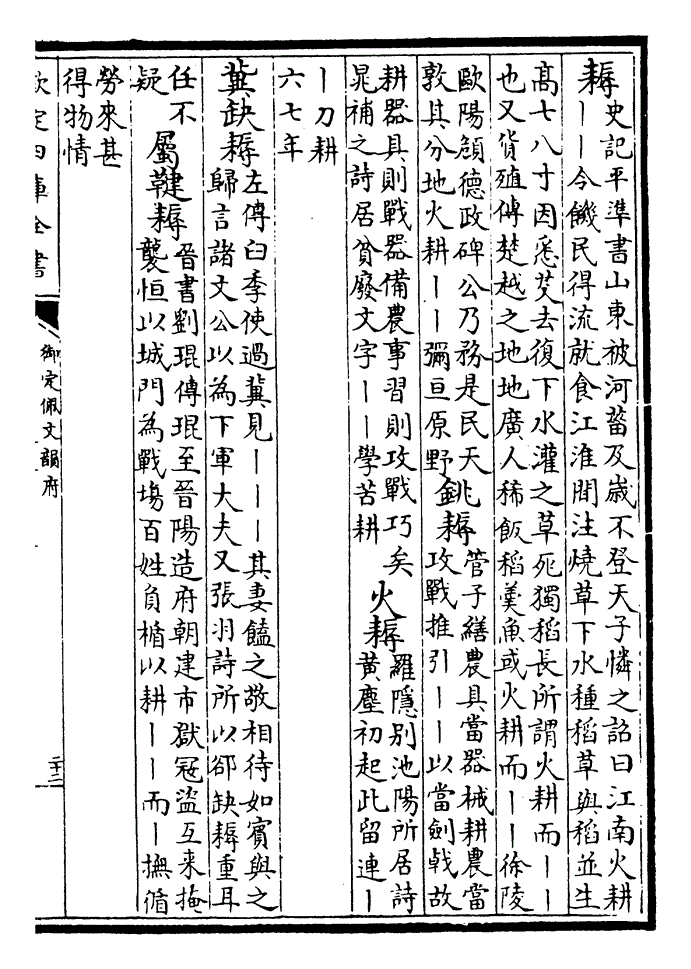 耨史記平準書山東被河菑及歲不登天子憐之詔曰江南火耕
丨丨令饑民得流就食江淮間注燒草下水種稻草與稻並生
高七八寸因悉芟去復下水灌之草死獨稻長所謂火耕而丨丨
也又貨殖傳楚越之地地廣人稀飯稻羹魚或火耕而丨丨徐陵
歐陽頠德政碑公乃務是民天
敦其分地火耕丨丨彌亘原野
銚耨管子繕農具當器械耕農當
攻戰推引丨丨以當劍戟故
耕器具則戰器備農事習則攻戰巧矣
晁補之詩居貧廢文字丨丨學苦耕
火耨羅隱別池陽所居詩
黃塵初起此留連丨
丨刀耕
六七年
冀缺耨左傳臼季使過冀見丨丨丨其妻饁之敬相待如賓與之
歸言諸文公以為下軍大夫又張羽詩所以郤缺耨重耳
任不
疑
屬鞬耨晉書劉琨傳琨至晉陽造府朝建市獄冦盜互來掩
襲恒以城門為戰塲百姓負楯以耕丨丨而丨撫循
勞來甚
得物情
欽定四庫全書
御定佩文韻府
二十二